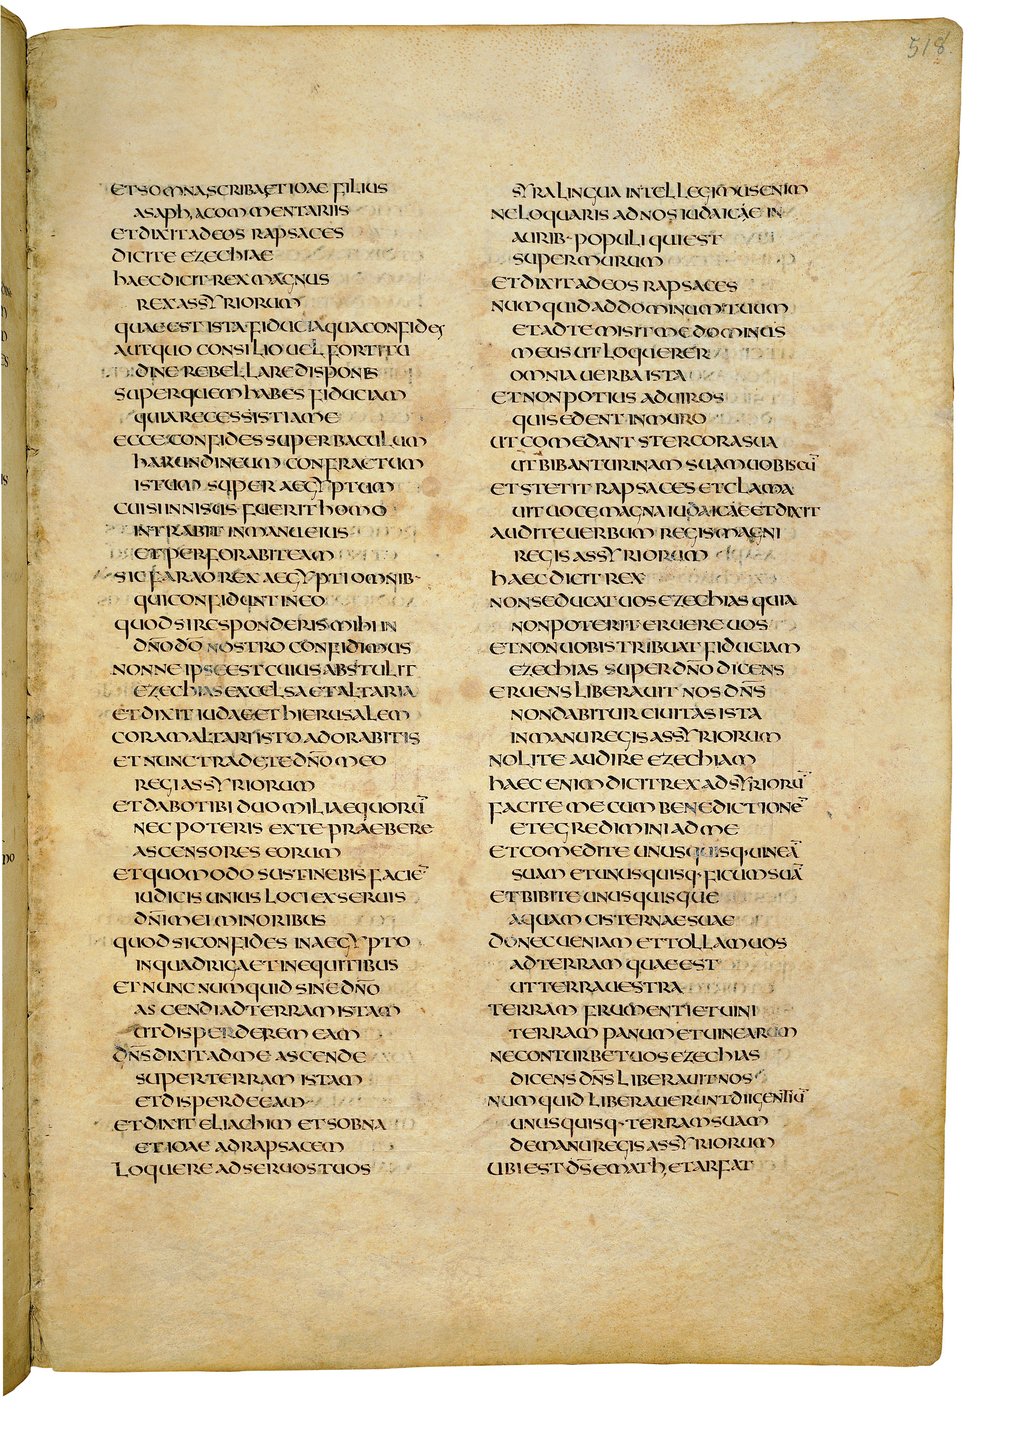 518
ET SOMNA SCRIBA ET IOAE FILIUS
ASAPH, A COMMENTARIIS
ET DIXIT AD EOS RAPSACES
DICITE EZECHIAE
HAEC DICIT REX MAGNUS
REX ASSYRIORUM
QUAE EST ISTA FIDUCIA QUA CONFIDES
AUT QUO CONSILIO UEL FORTITU
DINE REBELLARE DISPONIS
SUPER QUEM HABES FIDUCIAM
QUIA RECESSISTI A ME
ECCE CONFIDES SUPER BACULUM
HARUNDINEUM CONFRACTUM
ISTUM SUPER AEGYPTUM
CUI SI INNISUS FUERIT HOMO
INTRABIT IN MANU EIUS
ET PERFORABIT EAM
SIC FARAO REX AEGYPTI OMNIB·
QUI CONFIDUNT IN EO
QUOD SI RESPONDERIS MIHI IN
DÑO DŌ NOSTRO CONFIDIMUS
NONNE IPSE EST CUIUS ABSTULIT
EZECHIAS EXCELSA ET ALTARIA
ET DIXIT IUDAE ET HIERUSALEM
CORAM ALTARI ISTO ADORABITIS
ET NUNC TRADE TE DÑO MEO
REGI ASSYRIORUM
ET DABO TIBI DUO MILIA EQUORŪ
NEC POTERIS EX TE PRAEBERE
ASCENSORES EORUM
ET QUOMODO SUSTINEBIS FACIĒ
IUDICIS UNIUS LOCI EX SERUIS
DÑI MEI MINORIBUS
QUOD SI CONFIDES IN AEGYPTO
IN QUADRIGA ET IN EQUITIBUS
ET NUNC NUMQUID SINE DÑO
ASCENDI AD TERRAM ISTAM
UT DISPERDEREM EAM
DÑS DIXIT AD ME ASCENDE
SUPER TERRAM ISTAM
ET DISPERDE EAM
ET DIXIT ELIACHIM ET SOBNA
ET IOAE AD RAPSACEM
LOQUERE AD SERUOS TUOS
SYRA LINGUA INTELLEGIMUS ENIM
NE LOQUARIS AD NOS IUDAICAE IN
AURIB· POPULI QUI EST
SUPER MURUM
ET DIXIT AD EOS RAPSACES
NUMQUID AD DOMINUM TUUM
ET AD TE MISIT ME DOMINUS
MEUS UT LOQUERER
OMNIA UERBA ISTA
ET NON POTIUS AD UIROS
QUI SEDENT IN MURO
UT COMEDANT STERCORA SUA
UT BIBANT URINAM SUAM UOBISCŪ
ET STETIT RAPSACES ET CLAMA
UIT UOCE MAGNA IUDAICAE ET DIXIT
AUDITE UERBUM REGIS MAGNI
REGIS ASSYRIORUM
HAEC DICIT REX
NON SEDUCAT UOS EZECHIAS QUIA
NON POTERIT ERUERE UOS
ET NON UOBIS TRIBUAT FIDUCIAM
EZECHIAS SUPER DÑO DICENS
ERUENS LIBERAUIT NOS DÑS
NON DABITUR CIUITAS ISTA
IN MANU REGIS ASSYRIORUM
NOLITE AUDIRE EZECHIAM
HAEC ENIM DICIT REX ADSYRIORŪ
FACITE MECUM BENEDICTIONĒ
ET EGREDIMINI AD ME
ET COMEDITE UNUSQUISQ· UINEĀ
SUAM ET UNUSQUISQ· FICUM SUĀ
ET BIBITE UNUSQUISQUE
AQUAM CISTERNAE SUAE
DONEC UENIAM ET TOLLAM UOS
AD TERRAM QUAE EST
UT TERRA UESTRA
TERRAM FRUMENTI ET UINI
TERRAM PANUM ET UINEARUM
NE CONTURBET UOS EZECHIAS
DICENS DÑS LIBERAUIT NOS
NUMQUID LIBERAUERUNT DII GENTIŪ
UNUSQUISQ· TERRAM SUAM
DE MANU REGIS ASSYRIORUM
UBI EST D̄S EMATH, ET ARFAT